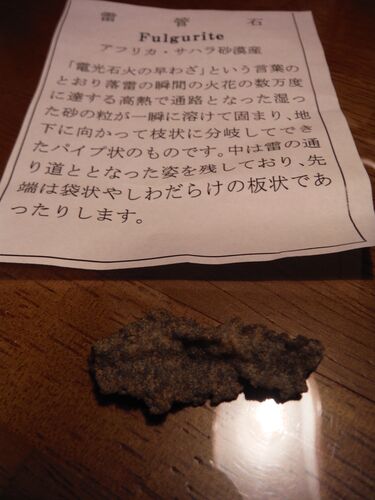 雷管石
Fulgurite
アフリカ・サハラ砂漠産
「電光石火の早わざ」という言葉の
とおり落雷の瞬間の火花の数万度
に達する高熱で通路となった湿っ
た砂の粒が一瞬に溶けて固まり、地
下に向かって枝状に分岐してでき
たパイプ状のものです。中は雷の通
り道ととなった姿を残しており、先
端は袋状やしわだらけの板状であ
ったりします。